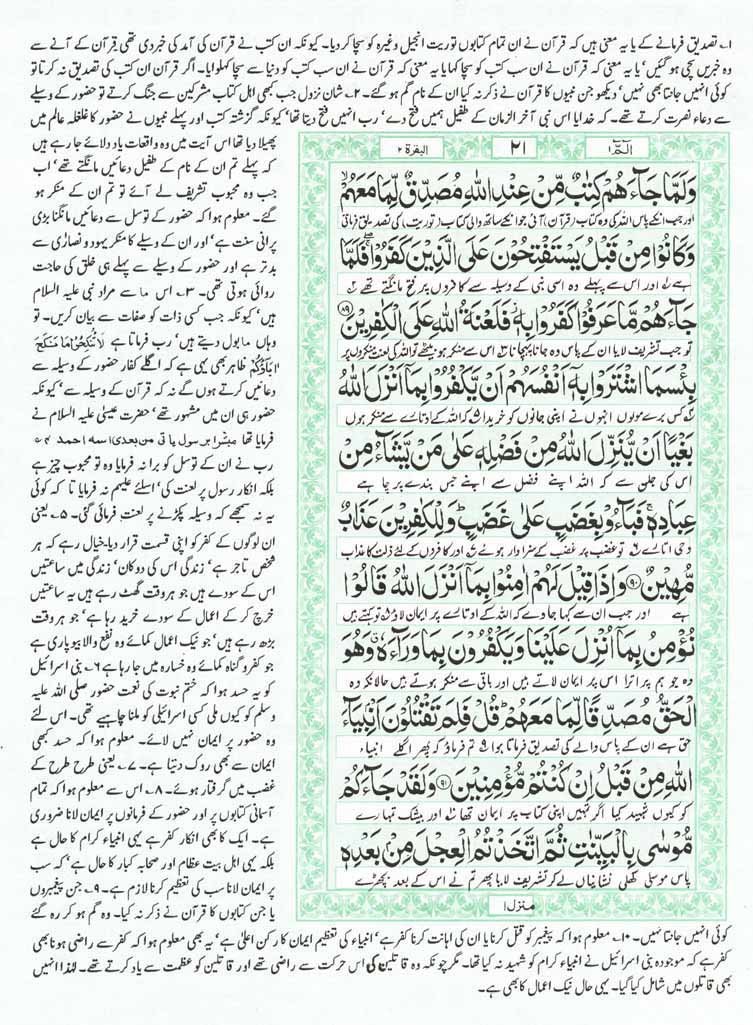 ۱۔ تصدیق فرمانے کے یا یہ معنی ہیں کہ قرآن نے ان تمام کتابوں توریت انجیل وغیرہ کو سچا کر دیا۔ کیونکہ ان کتب نے قرآن کی آمد کی خبر دی تھی قرآن کے آنے سے
وہ خبریں سچی ہو گئیں' یا یہ معنی کہ قرآن نے ان سب کتب کو سچا کہا یا یہ معنی کہ قرآن نے ان سب کتب کو دنیا سے سچا کہلوایا۔ اگر قرآن ان کتب کی تصدیق نہ کرتا تو
کوئی انہیں جانتا بھی نہیں' دیکھو جن نبیوں کا قرآن نے ذکر نہ کیا ان کے نام گم ہو گئے۔ ۲۔ شان نزول جب کبھی اہل کتاب مشرکین سے جنگ کرتے تو حضور کے وسیلے
سے دعاء نصرت کرتے تھے۔ کہ خدایا اس نبی آخر الزمان کے طفیل ہمیں فتح دے' رب انہیں فتح دیتا تھا' کیونکہ گزشتہ کتب اور پہلے نبیوں نے حضور کا غلغلہ عالم میں
پھیلا دیا تھا اس آیت میں وہ واقعات یاد دلائے جا رہے ہیں
کہ پہلے تم ان کے نام کے طفیل دعائیں مانگتے تھے' اب
جب وہ محبوب تشریف لے آئے تو تم ان کے منکر ہو
گئے۔ معلوم ہوا کہ حضور کے توسل سے دعائیں مانگنا بڑی
پرانی سنت ہے' اور ان کے وسیلے کا منکر یہود و نصاریٰ سے
بد تر ہے اور حضور کے وسیلے سے پہلے ہی خلق کی حاجت
روائی ہوتی تھی۔ ۳۔ اس ما سے مراد نبی علیہ السلام
ہیں' کیونکہ جب کسی ذات کو صفات سے بیان کریں۔ تو
وہاں ما بول دیتے ہیں' رب فرماتا ہے لَا تَنْكِحُوْا مَا نَكَحَ
اٰبَآؤُكُمْ ظاہر بھی یہی ہے کہ اگلے کفار حضور کے وسیلہ سے
دعائیں کرتے ہوں گے نہ کہ قرآن کے وسیلہ سے' کیونکہ
حضور ہی ان میں مشہور تھے' حضرت عیسیٰ علیہ السلام نے
فرمایا تھا مبشرا برسول یاتی من بعدی اسمہ احمد ۴۔
رب نے ان کے توسل کو برا نہ فرمایا وہ تو محبوب چیز ہے
بلکہ انکار رسول پر لعنت کی' اسلئے علیہم نہ فرمایا تا کہ کوئی
یہ نہ سمجھے کہ وسیلہ پکڑنے پر لعنت فرمائی گئی۔ ۵۔ یعنی
ان لوگوں کے کفر کو اپنی قسمت قرار دیا۔ خیال رہے کہ ہر
شخص تاجر ہے' زندگی اس کی دوکان' زندگی میں ساعتیں
اس کے سودے ہیں جو ہر وقت گھٹ رہے ہیں یہ ساعتیں
خرچ کر کے اعمال کے سودے خرید رہا ہے' جو ہر وقت
بڑھ رہے ہیں' جو نیک اعمال کمائے وہ نفع والا بیوپاری ہے
جو کفر و گناہ کمائے وہ خسارہ میں جا رہا ہے ۶۔ بنی اسرائیل
کو یہ حسد ہوا کہ ختم نبوت کی نعمت حضور صلی اللہ علیہ
وسلم کو کیوں ملی کسی اسرائیلی کو ملنا چاہیے تھی۔ اس لئے
وہ حضور پر ایمان نہیں لائے۔ معلوم ہوا کہ حسد کبھی
ایمان سے بھی روک دیتا ہے۔ ۷۔ یعنی طرح طرح کے
غضب میں گرفتار ہوئے۔ ۸۔ اس سے معلوم ہوا کہ تمام
آسمانی کتابوں پر اور حضور کے فرمانوں پر ایمان لانا ضروری
ہے۔ ایک کا بھی انکار کفر ہے یہی انبیاء کرام کا حال ہے
بلکہ یہی اہل بیت عظام اور صحابہ کبار کا حال ہے' کہ سب
پر ایمان لانا سب کی تعظیم کرنا لازم ہے۔ ۹۔ جن پیغمبروں
یا جن کتابوں کا قرآن نے ذکر نہ کیا۔ وہ گم ہو کر رہ گئے
الٓمّٓ ۱
۲۱
البقرة ۲
وَلَمَّا جَآءَهُمْ كِتٰبٌ مِّنْ عِنْدِ اللّٰهِ مُصَدِّقٌ لِّمَا مَعَهُمْ
اور جب انکے پاس اللہ کی وہ کتاب (قرآن) آئی جو انکے ساتھ والی کتاب (توریت) کی تصدیق فرماتی
وَكَانُوْا مِنْ قَبْلُ يَسْتَفْتِحُوْنَ عَلَى الَّذِيْنَ كَفَرُوْا فَلَمَّا
ہے ۱ اور اس سے پہلے وہ اسی نبی کے وسیلہ سے کافروں پر فتح مانگتے تھے ۲
جَآءَهُمْ مَّا عَرَفُوْا كَفَرُوْا بِهٖ فَلَعْنَةُ اللّٰهِ عَلَى الْكٰفِرِيْنَ ۸۹
تو جب تشریف لایا ان کے پاس وہ جانا پہچانا ۳ اس سے منکر ہو بیٹھے تو اللہ کی لعنت منکروں پر
بِئْسَمَا اشْتَرَوْا بِهٖٓ اَنْفُسَهُمْ اَنْ يَّكْفُرُوْا بِمَآ اَنْزَلَ اللّٰهُ
۴ کس برے مولوں انہوں نے اپنی جانوں کو خریدا ۵ کہ اللہ کے اتارے سے منکر ہوں
بَغْيًا اَنْ يُّنَزِّلَ اللّٰهُ مِنْ فَضْلِهٖ عَلٰى مَنْ يَّشَآءُ مِنْ
اس کی جلن سے کہ اللہ اپنے فضل سے اپنے جس بندے پر چاہے
عِبَادِهٖ فَبَآءُوْ بِغَضَبٍ عَلٰى غَضَبٍ وَلِلْكٰفِرِيْنَ عَذَابٌ
وحی اتارے ۶ تو غضب پر غضب کے سزاوار ہوئے ۷ اور کافروں کے لئے ذلت کا عذاب
مُّهِيْنٌ ۹۰ وَاِذَا قِيْلَ لَهُمْ اٰمِنُوْا بِمَآ اَنْزَلَ اللّٰهُ قَالُوْا
ہے اور جب ان سے کہا جاوے کہ اللہ کے اوتارے پر ایمان لاؤ ۸ تو کہتے ہیں
نُؤْمِنُ بِمَآ اُنْزِلَ عَلَيْنَا وَيَكْفُرُوْنَ بِمَا وَرَآءَهٗ وَهُوَ
وہ جو ہم پر اترا اس پر ایمان لاتے ہیں اور باقی سے منکر ہوتے ہیں حالانکہ وہ
الْحَقُّ مُصَدِّقًا لِّمَا مَعَهُمْ قُلْ فَلِمَ تَقْتُلُوْنَ اَنْۢبِيَآءَ
حق ہے ان کے پاس والے کی تصدیق فرماتا ہوا ۹ تم فرماؤ کہ پھر اگلے انبیاء
اللّٰهِ مِنْ قَبْلُ اِنْ كُنْتُمْ مُّؤْمِنِيْنَ ۹۱ وَلَقَدْ جَآءَكُمْ
کو کیوں شہید کیا اگر تمہیں اپنی کتاب پر ایمان تھا ۱۰ اور بیشک تمہارے
مُّوْسٰى بِالْبَيِّنٰتِ ثُمَّ اتَّخَذْتُمُ الْعِجْلَ مِنْۢ بَعْدِهٖ
پاس موسیٰ کھلی نشانیاں لے کر تشریف لایا پھر تم نے اس کے بعد بچھڑے
منزل ۱
کوئی انہیں جانتا نہیں۔ ۱۰۔ معلوم ہوا کہ پیغمبر کو قتل کرنا یا ان کی اہانت کرنا کفر ہے' انبیاء کی تعظیم ایمان کا رکن اعلیٰ ہے' یہ بھی معلوم ہوا کہ کفر سے راضی ہونا بھی
کفر ہے کہ موجودہ بنی اسرائیل نے انبیاء کرام کو شہید نہ کیا تھا۔ مگر چونکہ وہ قاتلین کی اس حرکت سے راضی تھے اور قاتلین کو عظمت سے یاد کرتے تھے۔ لہٰذا انہیں
بھی قاتلوں میں شامل کیا گیا۔ یہی حال نیک اعمال کا بھی ہے۔